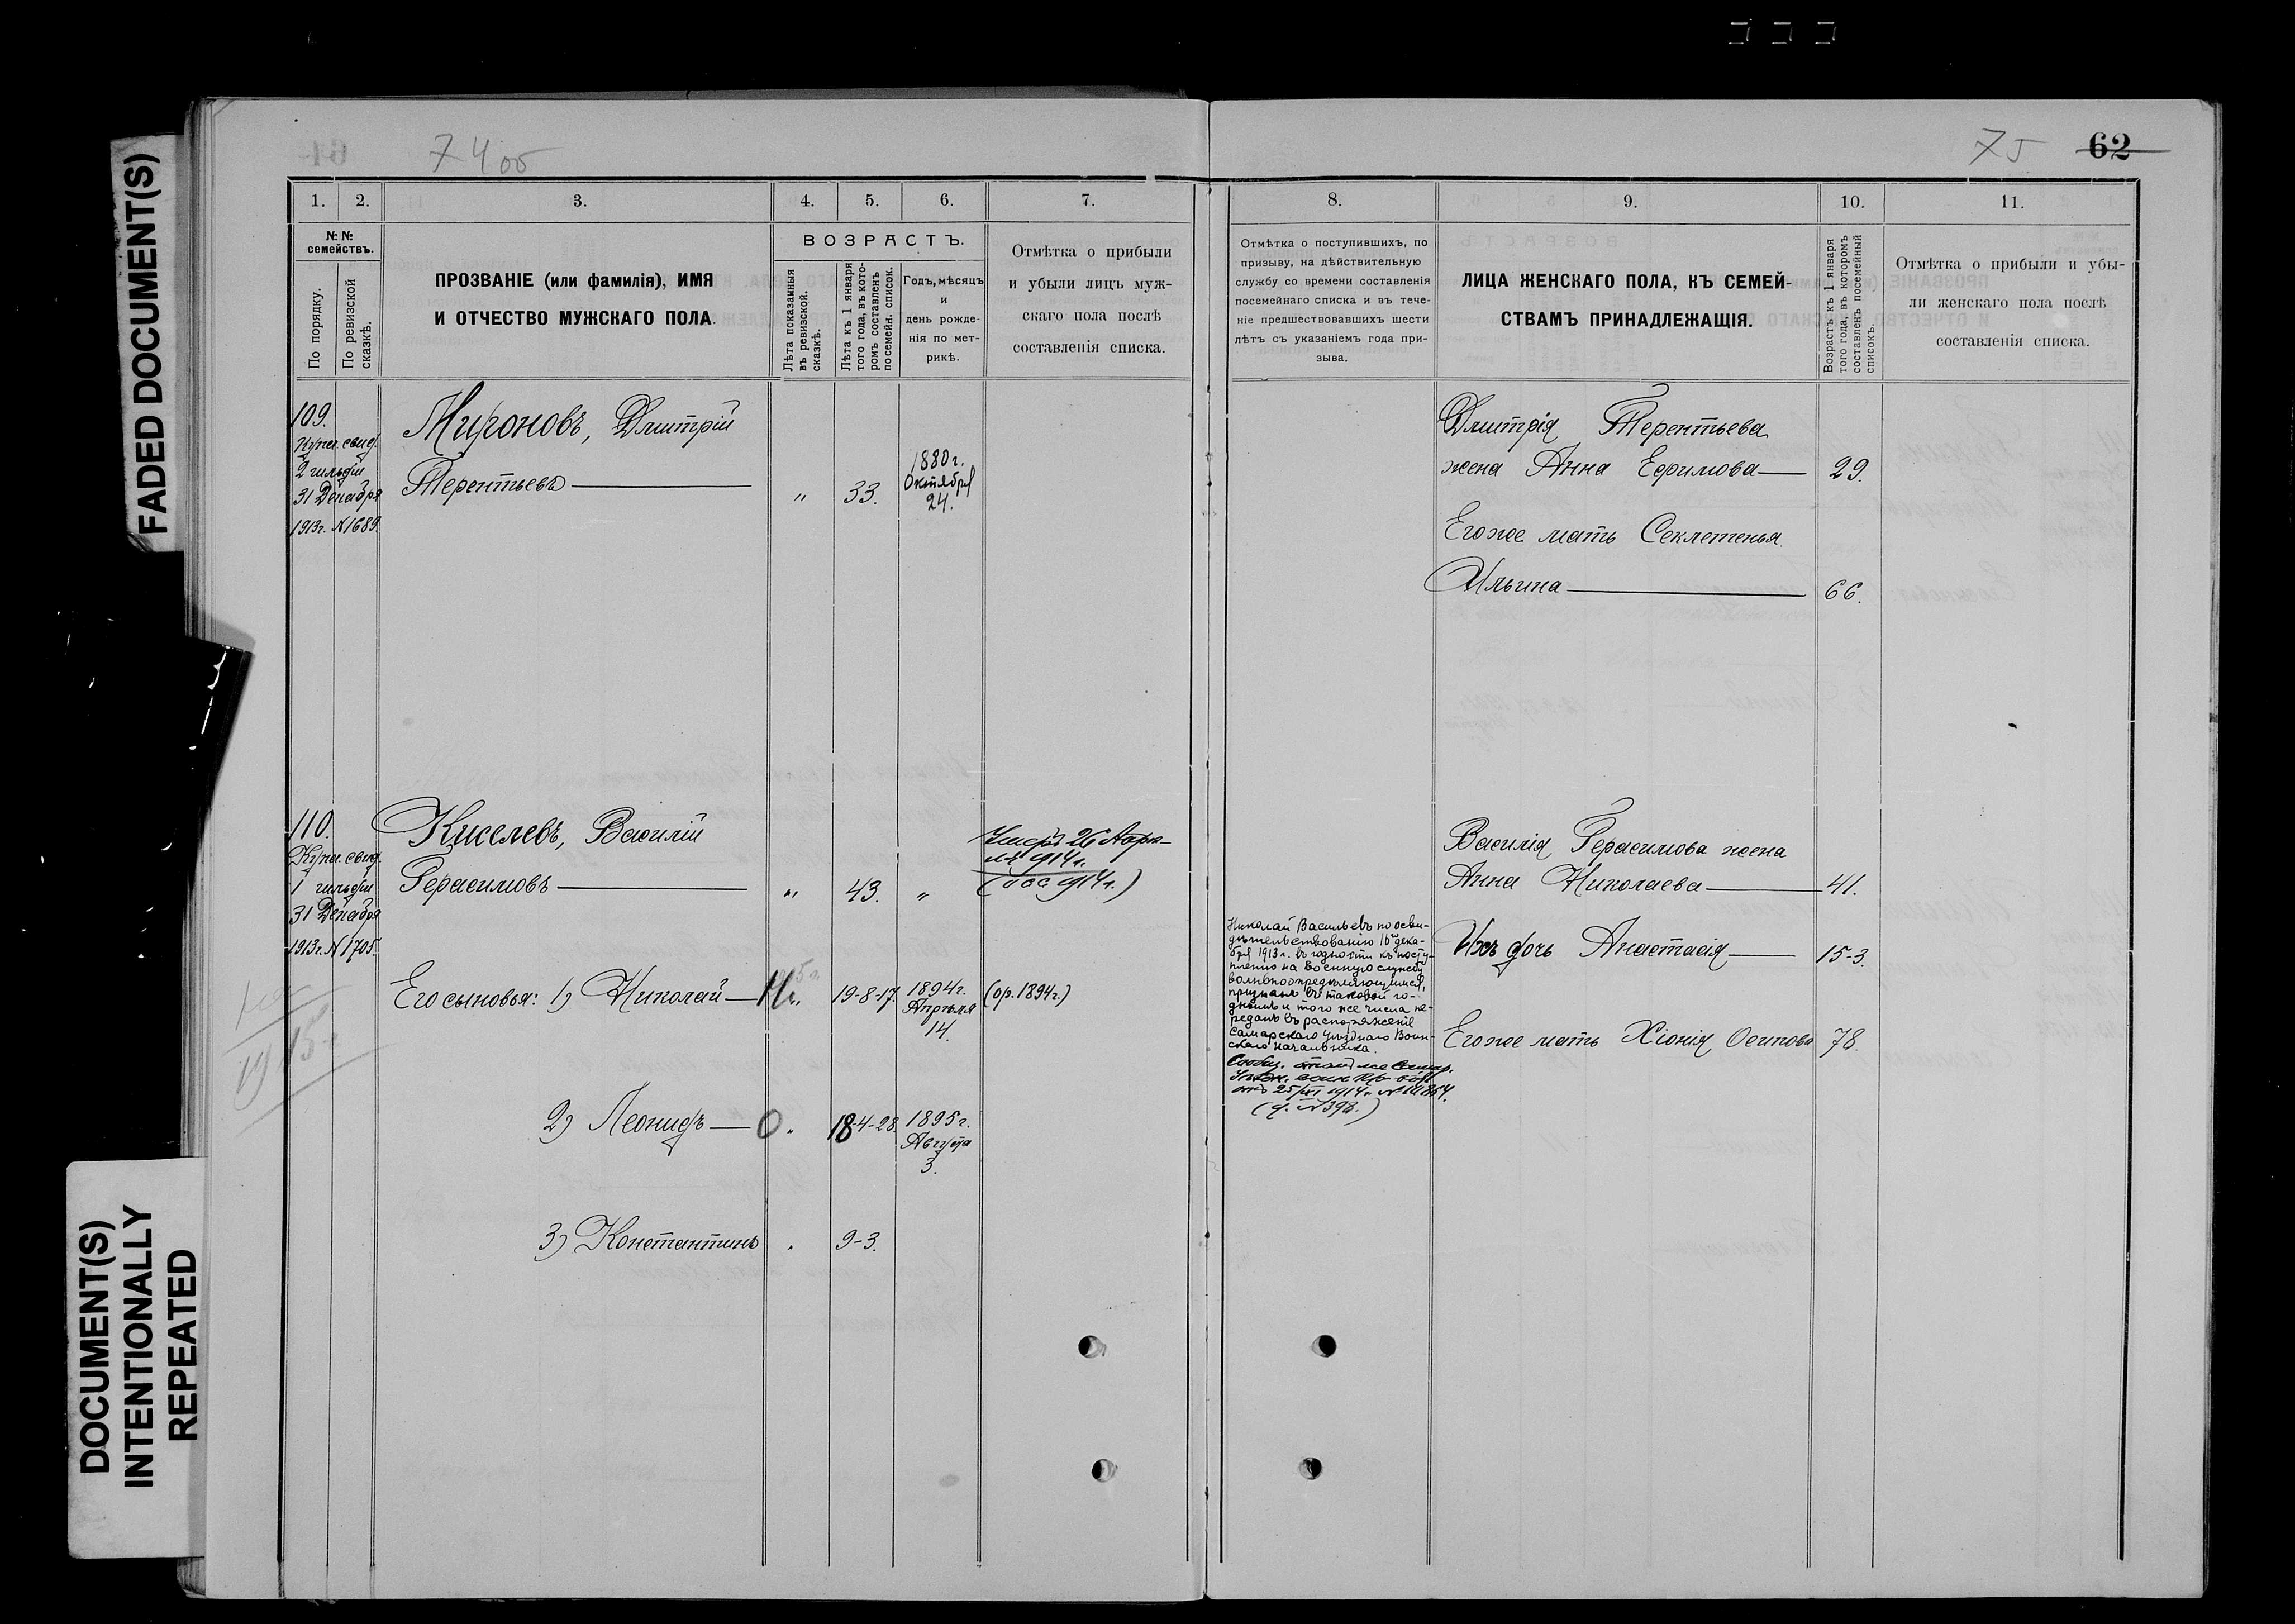 FADED DOCUMENT(S)
DOCUMENT(S)
INTENTIONALLY
REPEATED
74 об
75
62
1.
2.
3.
4.
5.
6.
7.
№ №
семействъ.
По порядку.
По ревизской
сказкѣ.
ПРОЗВАНІЕ (или фамилія), ИМЯ
И ОТЧЕСТВО МУЖСКАГО ПОЛА.
ВОЗРАСТЪ.
Лѣта показанныя
въ ревизской.
сказкѣ.
Лѣта къ 1 января
того года, въ кото-
ромъ составленъ
посемейн. список.
Годъ, мѣсяцъ
и
день рожде-
нія по мет-
рикѣ.
Отмѣтка о прибыли
и убыли лицъ муж-
скаго пола послѣ
составленія списка.
109.
Купеч. свид.
2 гильдіи
31 Декабря
1913г. № 1689.
Мироновъ, Дмитрій
Терентьевъ
"
33.
1880г.
Октября
24.
110.
Купеч. свид.
1 гильдіи
31 Декабря
1913г. № 1705.
Киселевъ, Василій
Герасимовъ
"
43.
"
Умеръ 26 Апрѣ-
ля 1914г.
Его сыновья: 1) Николай
19-8-17.
1894г.
Апрѣля
14.
(ор. 1894г.)
1915г.
2) Леонидъ
О
18-4-28
1895г.
Августа
3.
3) Константинъ
9-3.
8.
9.
10.
11.
Отмѣтка о поступившихъ, по
призыву, на дѣйствительную
службу со времени составленія
посемейнаго списка и въ тече-
ніе предшествовавшихъ шести
лѣтъ съ указаніемъ года при-
зыва.
ЛИЦА ЖЕНСКАГО ПОЛА, КЪ СЕМЕЙ-
СТВАМЪ ПРИНАДЛЕЖАЩІЯ.
Возрастъ къ 1 января
того года, въ которомъ
составленъ посемейный
списокъ.
Отмѣтка о прибыли и убы-
ли женскаго пола послѣ
составленія списка.
Дмитрія Терентьева
жена Анна Ефимова
29.
Его же мать Секлетенья
Ильина
66.
Василія Герасимова жена
Анна Николаева
41.
Ихъ дочь Анастасія
15-3.
Его же мать Хіонія Осипова
78.
Николай Васильевъ по осви-
дѣтельствованію 16 дека-
бря 1913г. въ годности къ посту-
пленію на военную службу
вольноопредѣляющимся,
признанъ въ таковой го-
днымъ и того же числа пе-
реданъ въ распоряженіе
Самарскаго Уѣзднаго Воин-
скаго Начальника.